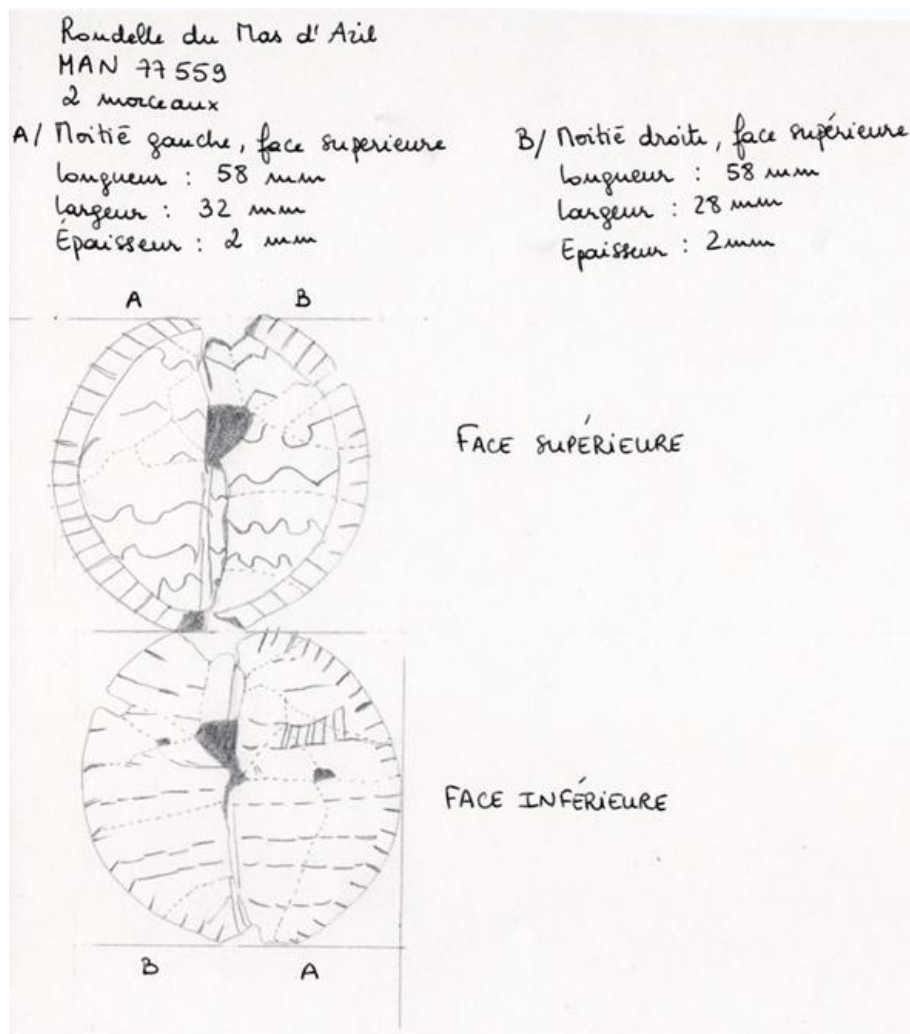 Rondelle du Mas d'Azil
MAN 77559
2 morceaux
A/ Moitié gauche, face superieure
Longueur : 58 mm
largeur : 32 mm
Épaisseur : 2 mm
B/ Moitié droite, face supérieure
Longueur : 58 mm
largeur : 28 mm
Epaisseur : 2mm
A B
FACE SUPÉRIEURE
FACE INFÉRIEURE
B A